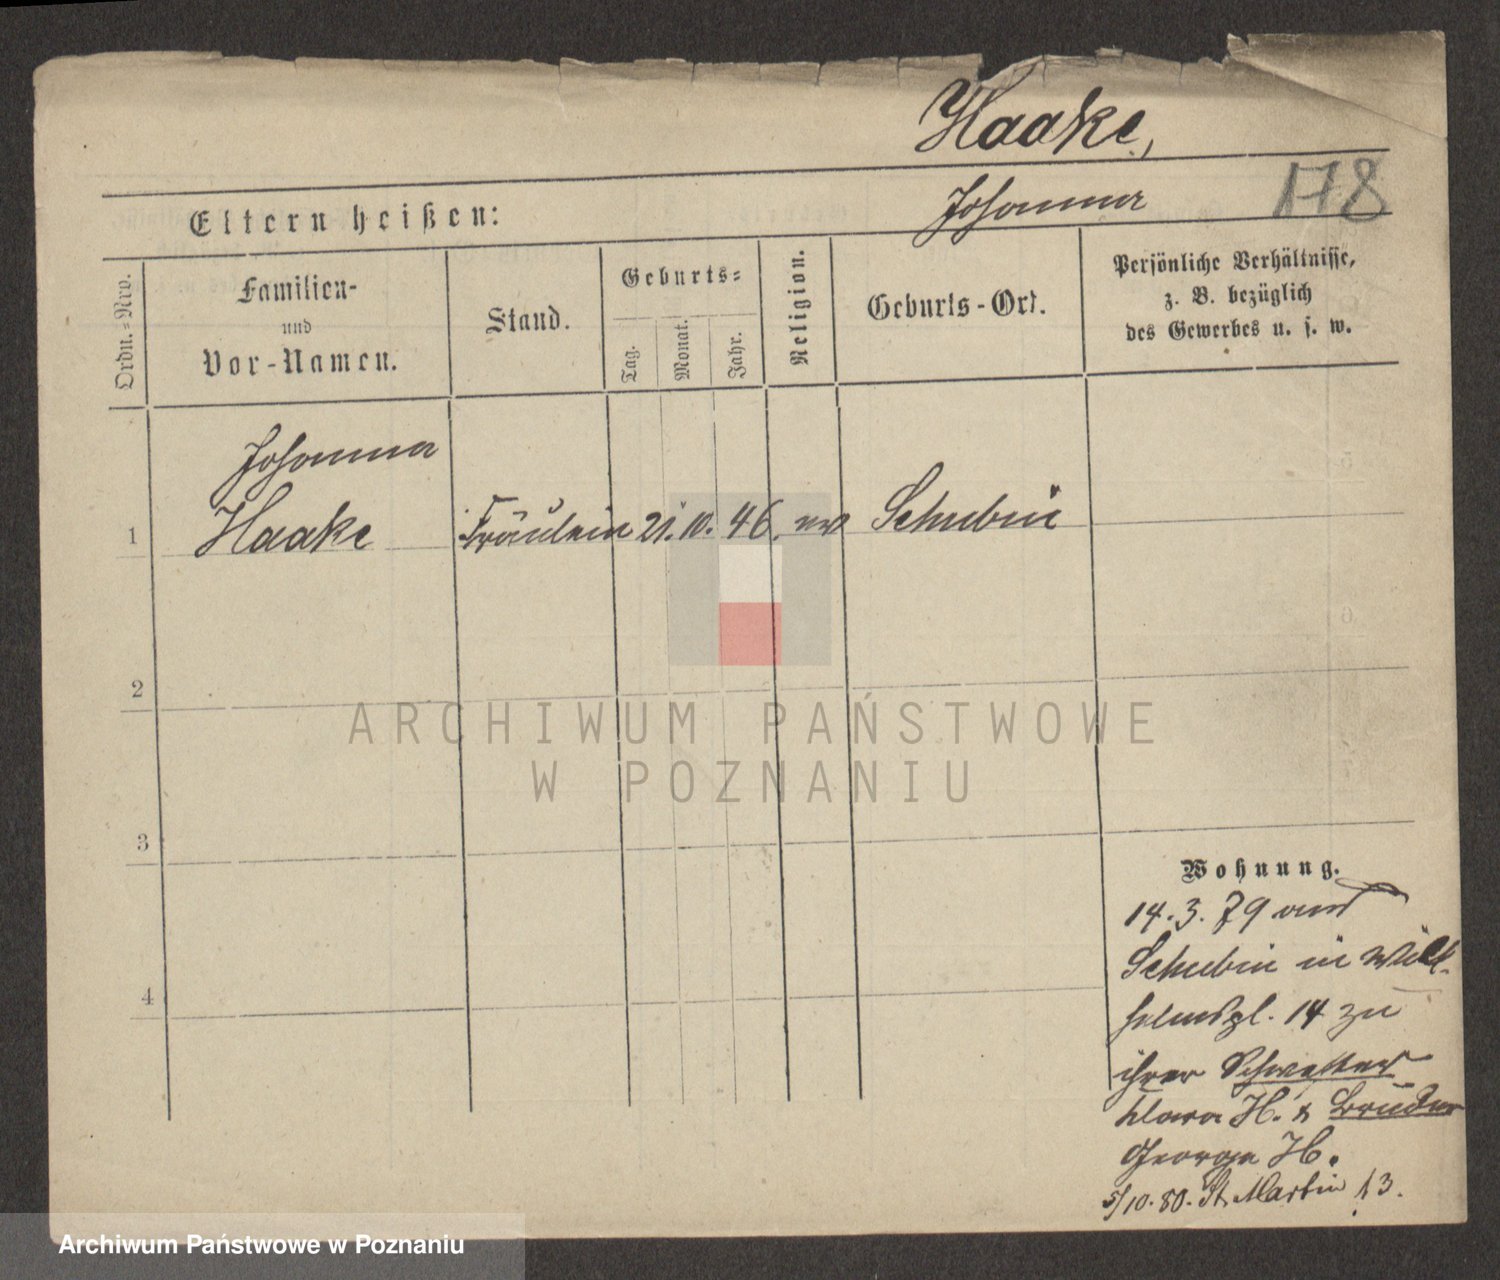 Haake,
Johanna
178
Eltern heißen:
Ordn.=Nro.
Familien-
und
Vor-Namen.
Stand.
Geburts=
Tag.
Monat.
Jahr.
Religion.
Geburts-Ort.
Persönliche Verhältnisse,
z. B. bezüglich
des Gewerbes u. s. w.
Johanna
1 Haake Fräulein 21. 10. 46. ev Schubin
2
3
4
Wohnung.
14. 3. 79 aus
Schubin in Wil-
helmspl. 14 zu
ihrer Schwester
Klara H. & Bruder
George H.
5/10. 80. St. Martin 13.
ARCHIWUM PAŃSTWOWE
W POZNANIU
Archiwum Państwowe w Poznaniu